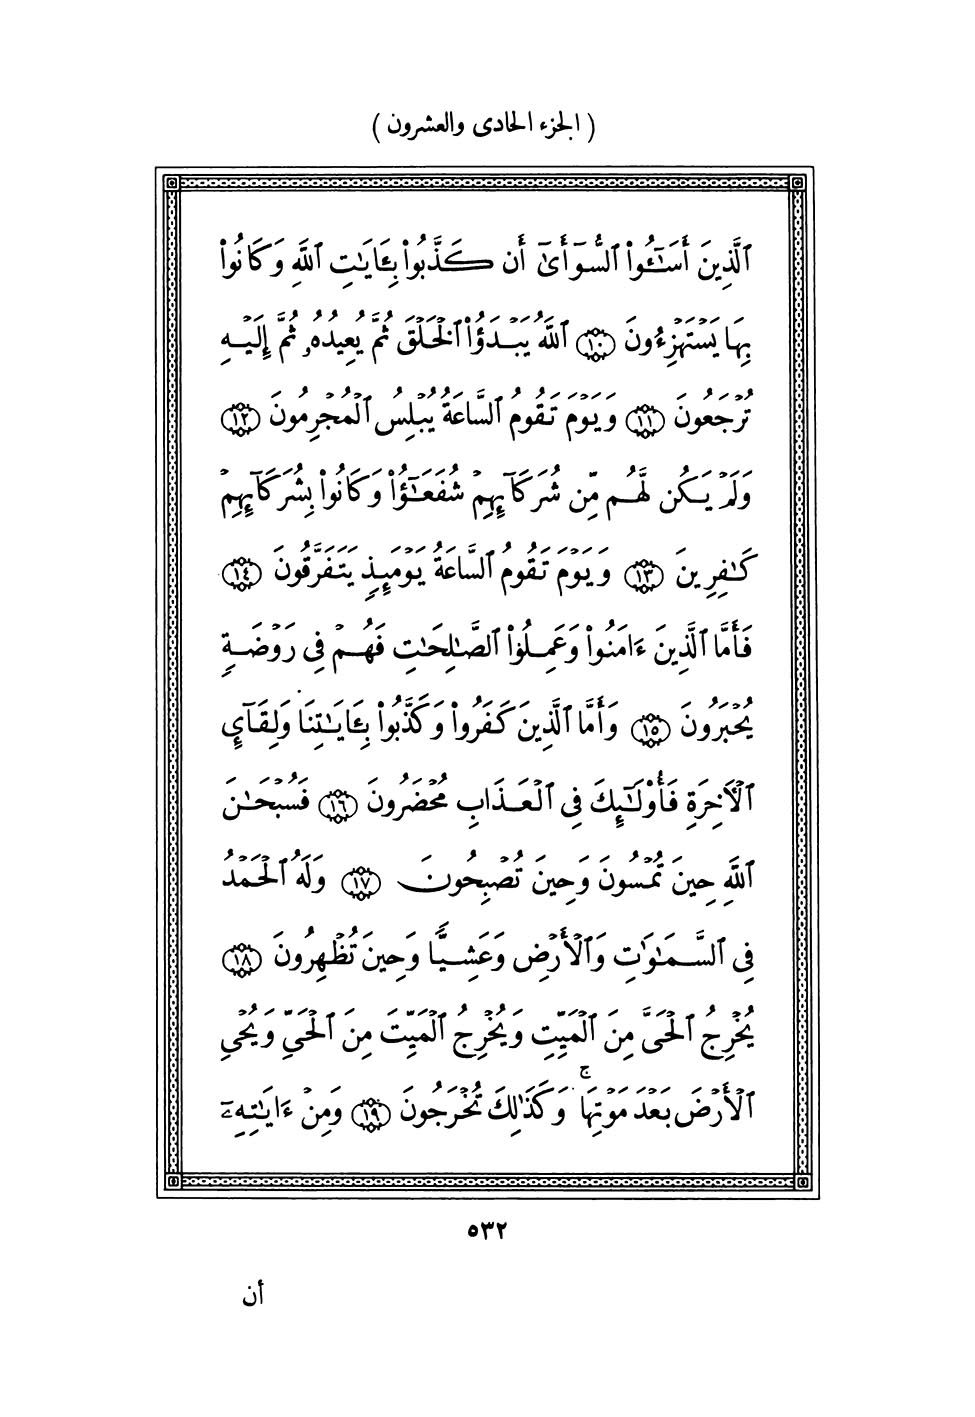 ( الجزء الحادى والعشرون )
ٱلَّذِينَ أَسَـٰٓـُٔواْ ٱلسُّوٓأَىٰٓ أَن كَذَّبُواْ بِـَٔايَـٰتِ ٱللَّهِ وَكَانُواْ
بِهَا يَسْتَهْزِءُونَ ١٠ ٱللَّهُ يَبْدَؤُاْ ٱلْخَلْقَ ثُمَّ يُعِيدُهُۥ ثُمَّ إِلَيْهِ
تُرْجَعُونَ ١١ وَيَوْمَ تَقُومُ ٱلسَّاعَةُ يُبْلِسُ ٱلْمُجْرِمُونَ ١٢
وَلَمْ يَكُن لَّهُم مِّن شُرَكَآئِهِمْ شُفَعَـٰٓؤُاْ وَكَانُواْ بِشُرَكَآئِهِمْ
كَـٰفِرِينَ ١٣ وَيَوْمَ تَقُومُ ٱلسَّاعَةُ يَوْمَئِذٍ يَتَفَرَّقُونَ ١٤
فَأَمَّا ٱلَّذِينَ ءَامَنُواْ وَعَمِلُواْ ٱلصَّـٰلِحَـٰتِ فَهُمْ فِى رَوْضَةٍ
يُحْبَرُونَ ١٥ وَأَمَّا ٱلَّذِينَ كَفَرُواْ وَكَذَّبُواْ بِـَٔايَـٰتِنَا وَلِقَآئِ
ٱلْـَٔاخِرَةِ فَأُوْلَـٰٓئِكَ فِى ٱلْعَذَابِ مُحْضَرُونَ ١٦ فَسُبْحَـٰنَ
ٱللَّهِ حِينَ تُمْسُونَ وَحِينَ تُصْبِحُونَ ١٧ وَلَهُ ٱلْحَمْدُ
فِى ٱلسَّمَـٰوَٰتِ وَٱلْأَرْضِ وَعَشِيًّا وَحِينَ تُظْهِرُونَ ١٨
يُخْرِجُ ٱلْحَىَّ مِنَ ٱلْمَيِّتِ وَيُخْرِجُ ٱلْمَيِّتَ مِنَ ٱلْحَىِّ وَيُحْىِ
ٱلْأَرْضَ بَعْدَ مَوْتِهَا ۚ وَكَذَٰلِكَ تُخْرَجُونَ ١٩ وَمِنْ ءَايَـٰتِهِۦٓ
٥٣٢
أن